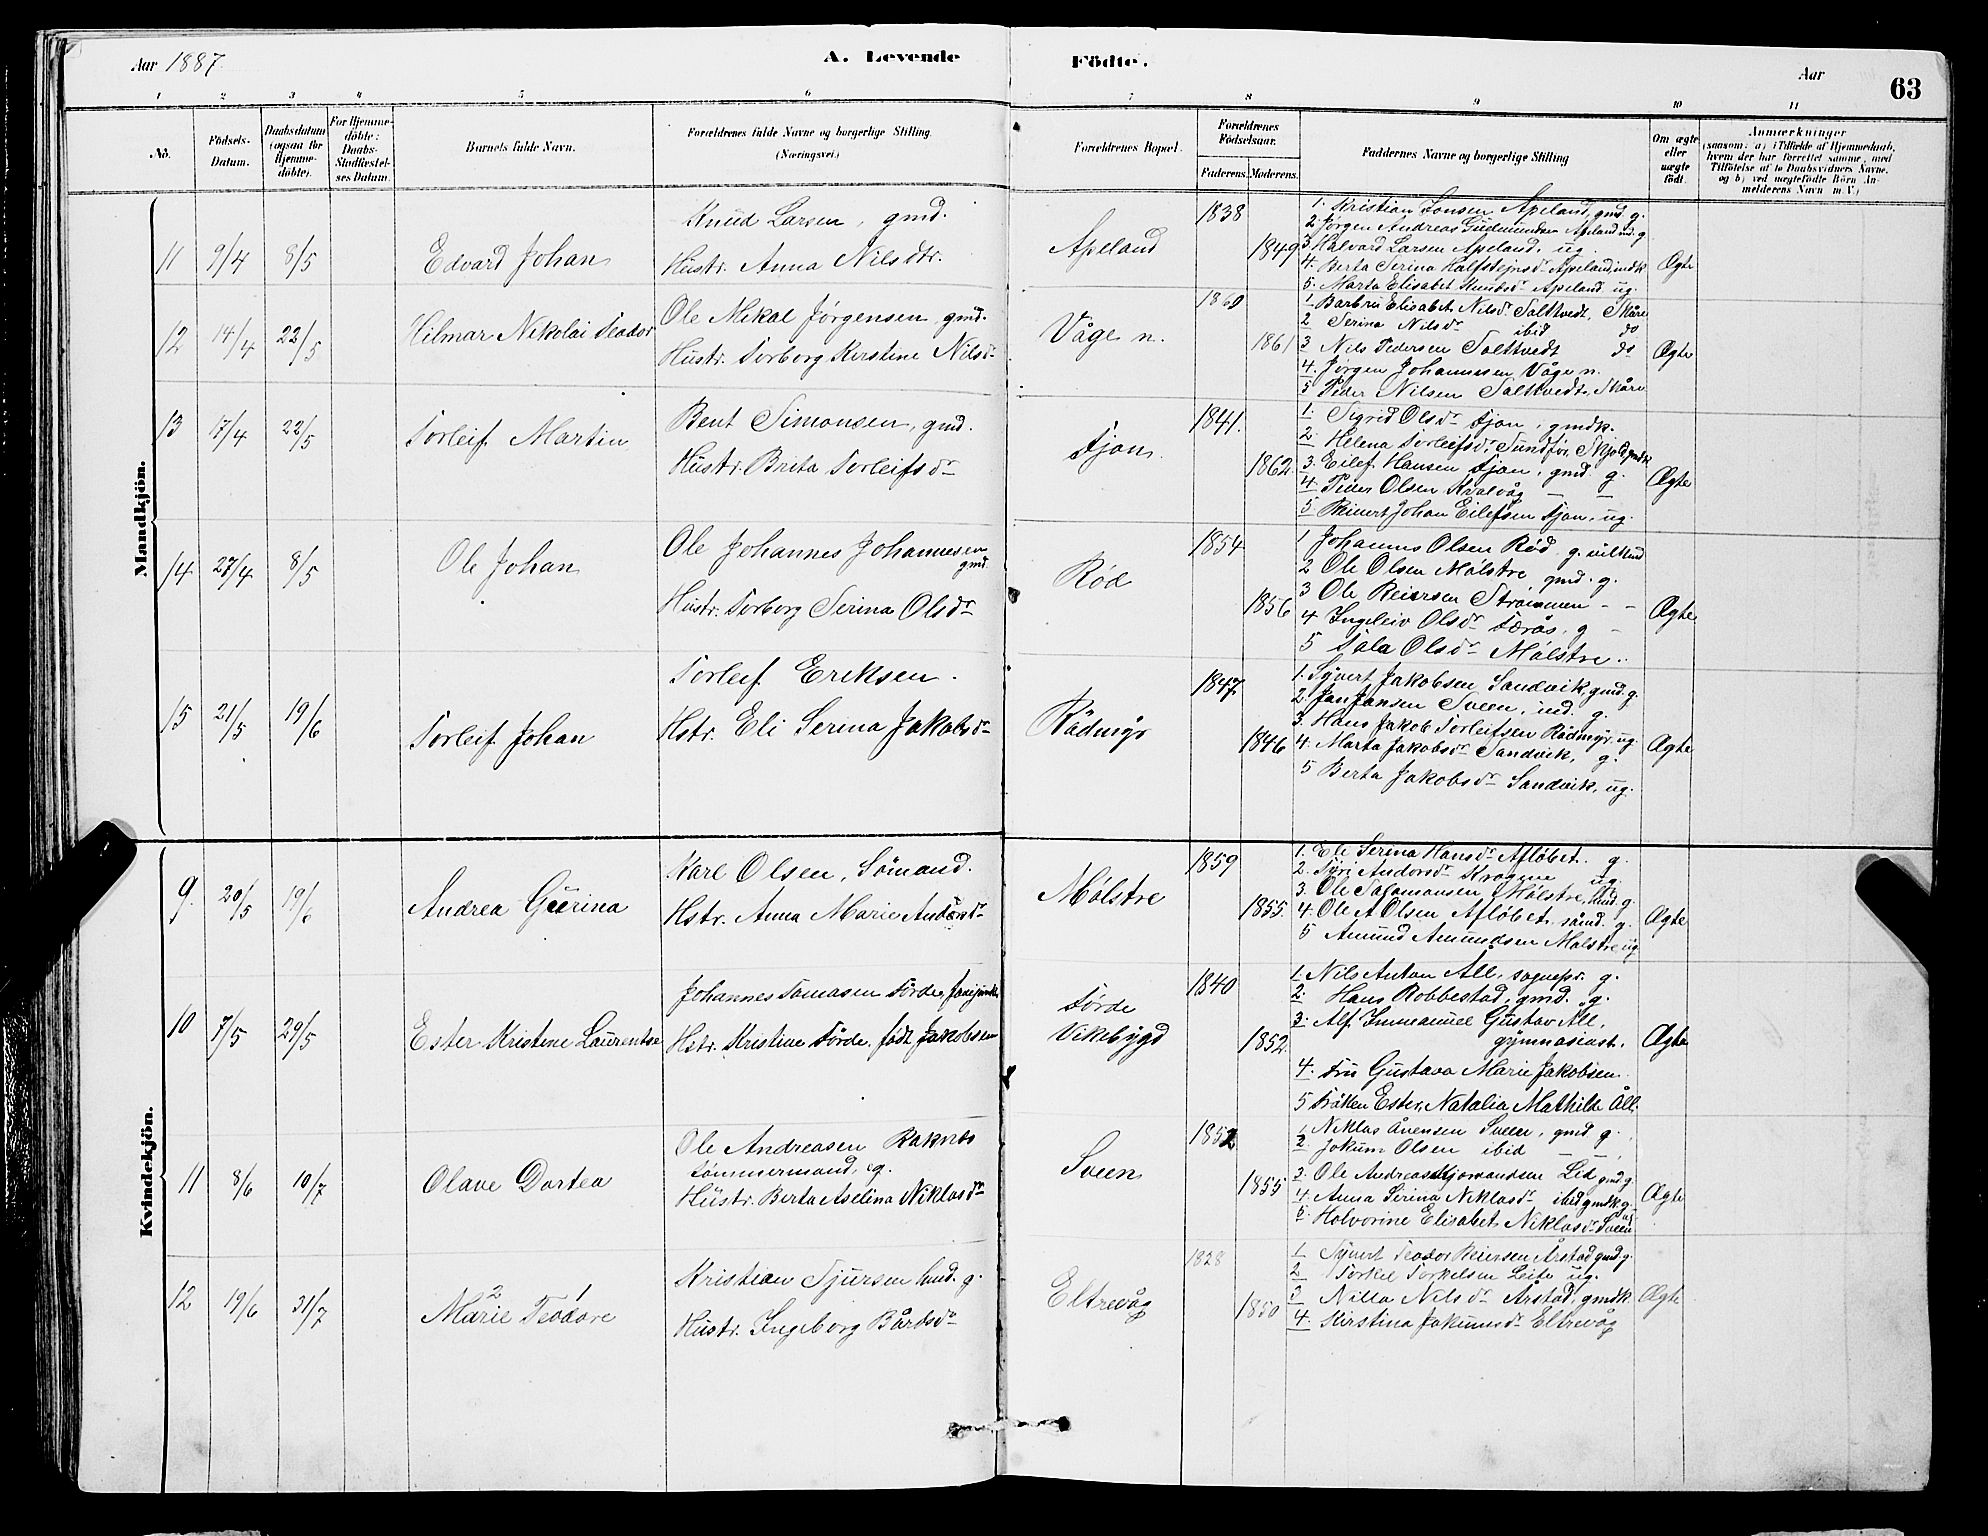 Aar 1887.
A. Levende
Födte.
Aar
63
1 2 3 4 5 6 7 8 9 10 11
No.
Födsels-Datum.
Daabsdatum (ogsaa for Hjemme-döbte).
For Hjemme-döbte: Daabs-Stadfæstel-ses Datum.
Barnets fulde Navn.
Forældrenes fulde Navne og borgerlige Stilling. (Næringsvei.)
Forældrenes Bopæl.
Forældrenes Födselsaar.
Faderens. Moderens.
Faddernes Navne og borgerlige Stilling
Om ægte eller uægte födt.
Anmærkninger
(saasom: a) i Tilfælde af Hjemmedaab, hvem der har forrettet samme, med Tilföielse af to Daabsvidners Navne, og b) ved uægtefödte Börn An-melderens Navn m. V.)
Mandkjön.
11 9/4 8/5 Edvard Johan
Knud Larsen, gmd.
Hustr. Anna Nilsdtr.
Apeland 1838 1849
1. Kristian Jonsen Apeland, gmd. g.
2. Jørgen Andreas Gudmundsen Apeland ind. g
3 Halvard Larsen Apeland, ug.
4. Berta Serina Halfstejnsdr Apeland, indk
5. Marta Elisabet Knudsdr Apeland ug.
Ægte
12 14/4 22/5 Hilmar Nikolai Teodor
Ole Mikal Jørgensen, gmd.
Hustr. Torborg Kerstine Nilsdr
Våge n. 1860 1861
1 Barbru Elisabet Nilsdr Saltvedt, Skåre
2 Serina Nilsdr ibid do
3 Nils Pedersen Saltvedt do
4. Jørgen Johannesen Våge n.
5 Peder Nilsen Saltvedt, Skåre
Ægte
13 17/4 22/5 Torleif Martin
Bent Simonsen, gmd.
Hustr. Brita Torleifsdr
Fjon 1841. 1862.
1. Sigrid Olsdr Fjon, gmdk.
2. Helena Torleifsdr Sundfør, Skjold gmdk
3. Eilef Hansen Fjon, gmd. g.
4. Peder Olsen Kvalvåg — —
5. Reinert Johan Eilefsen Fjon, ug.
Ægte
14 27/4 8/5 Ole Johan
Ole Johannes Johannesen gmd.
Hustr. Torborg Serina Olsdr
Rød 1854 1856
1 Johannes Olsen Rød g.
2 Ole Olsen Mölstre gmd. g.
3 Ole Reiersen Strømmen - -
4 Ingeleiv Olsdr Færås, g -
5 Tala Olsdr Mölstre.
Ægte
15 21/5 19/6 Torleif Johan
Torleif Eriksen.
Hstr. Eli Serina Jakobsdr
Rådmyr 1847 1846
1. Syvert Jakobsen Sandvik, gmd. g.
2. Jan Jansen Sveen, ind. g.
3. Hans Jakob Torleifsen Rådmyr, ug.
4. Marta Jakobsdr Sandvik, g.
5 Berta Jakobsdr Sandvik, ug.
Ægte
Kvindekjön.
9. 20/5 19/6 Andrea Gurina
Karl Olsen, Sömand.
Hstr. Anna Marie Andorsdr
Mölstre 1859 1855.
1. Eli Serina Hansdr Afløbet. g.
2. Syri Andorsdr Kragene ug.
3. Ole Salamonsen Mölstre, hmd. g.
4. Ole A Olsen Afløbet sömd. g.
5 Amund Amundsen Mölstre ug
Ægte
10 7/5 29/5 Ester Kristine Laurentse
Johannes Tomasen Førde,
Hstr. Kristine Førde, født Jakobsen
Førde Vikebygd 1840 1852.
1. Nils Anton Åll, sognepr. g.
2. Hans Robbestad, gmd. g.
3. Alf Immanuel Gustav Åll, gymnasiast.
4. Fru Gustava Marie Jakobsen.
5 Frøken Ester, Natalia Mathilde Åll.
Ægte
11 8/6 10/7 Olave Dortea
Ole Andreasen Raknes
tømmermand, g.
Hustr. Berta Aselina Niklasdr
Sveen 1852 1855
1. Niklas Ånensen Sveen, gmd g.
2. Jokum Olsen ibid — —
3. Ole Andreas Lid gmd g.
4. Anna Serina Niklasdr ibid gmdk. g.
5. Holvorine Elisabet Niklasdr Sveen ug
Ægte
12 19/6 31/7 Marie Teodore
Kristian Sjursen hmd. g.
Hustr. Ingeborg Bårdsdr
Eltrevåg 1828 1850
1 Syvert Teodor Reiersen Årstad gmd. g.
2 Torkel Torkelsen Leite ug.
3 Nilla Nilsdr Årstad, gmdk.
4. Kirstina Jakumsdr Eltrevåg
Ægte